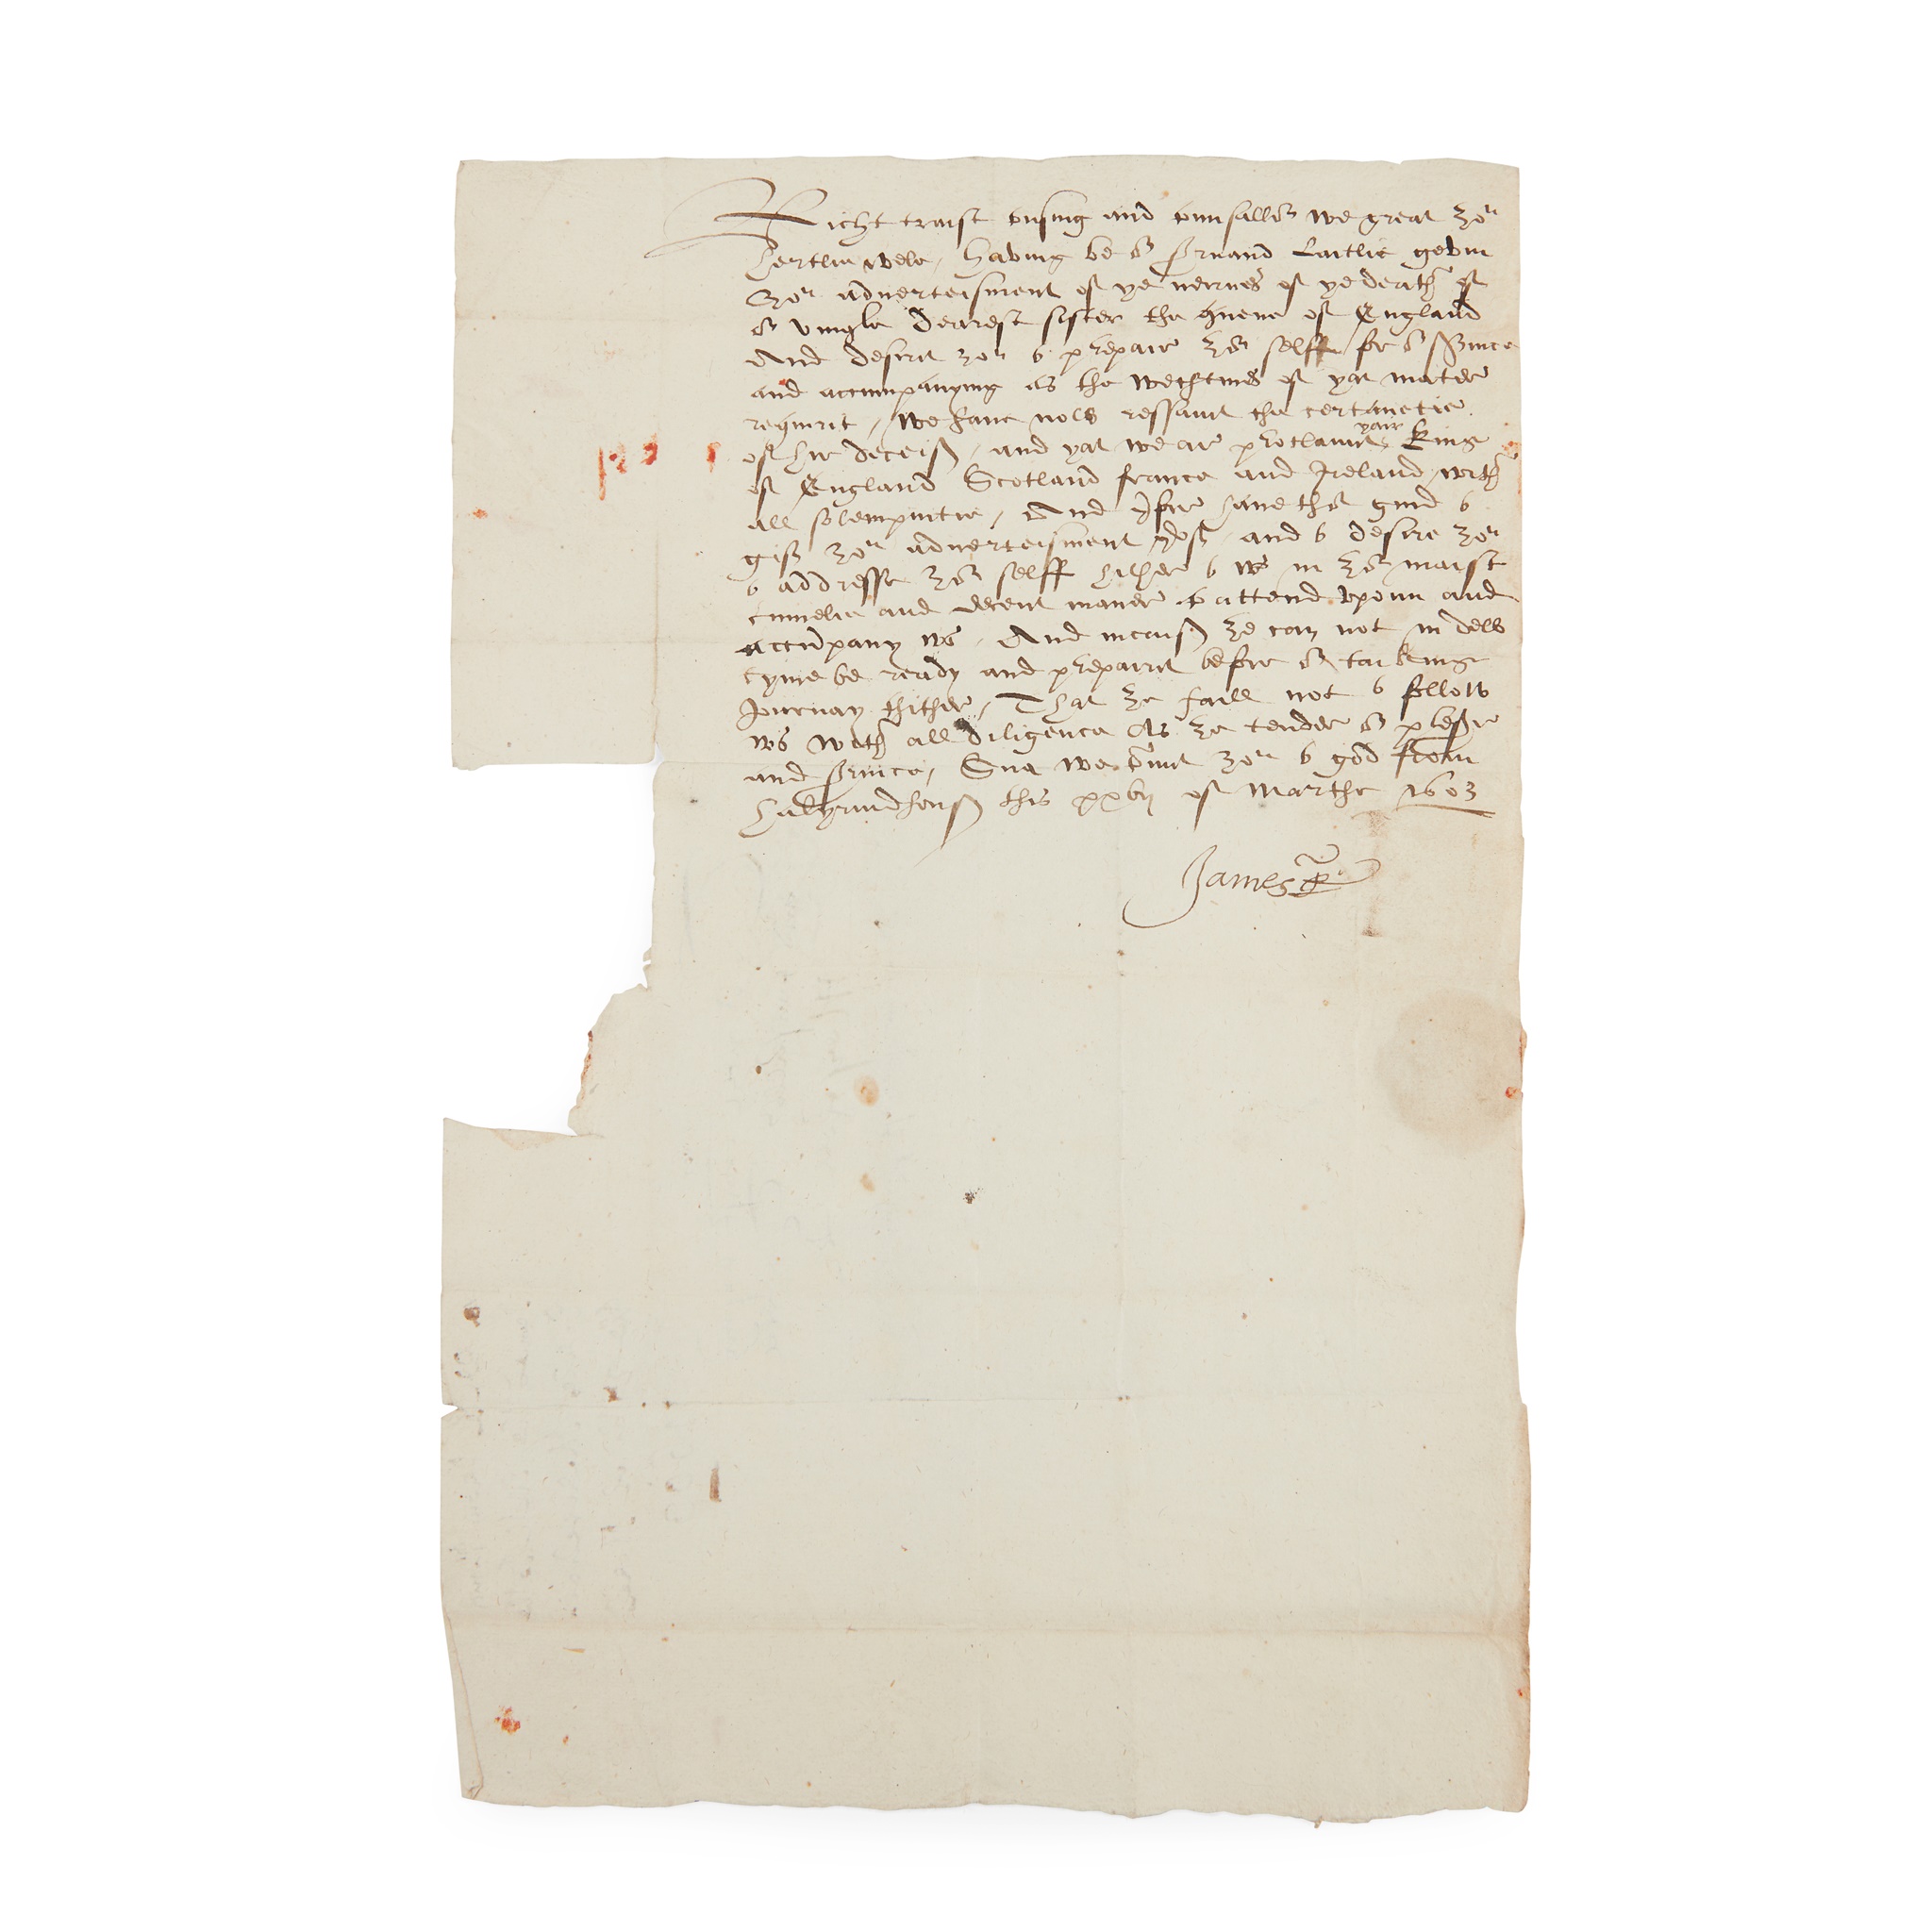 Richt traist cusing and counsallor we great ȝow
hertlie wele, having be or servand Lairtlie gevin
ȝow advertisment of ye neirnes of ye death of
or umqle dearest sister the quene of England
And desirit ȝow to prepair ȝor selff for or service
and accumpanying as the wechtines of yat mater
requirit, We have now ressavit the certantie
of hir deceiß, and yat we ar proclamit yair King
of England Scotland france and Ireland with
all solempnitie, And yrfore have thot guid to
giff ȝow advertisment yrof, and to desire ȝow
to addresse ȝor selff hither to ws in ȝor maist
cumelie and decent maner to attend upoun and
accumpany ws, And incaiß ȝe can not in dew
tyme be ready and prepairit before or taiking
Journay thither, That ȝe faill not to follow
ws with all diligence As ȝe tender or plesr
and service, Sua we comit ȝow to god from
Halyrudhous this xxvij of Marche 1603
James R